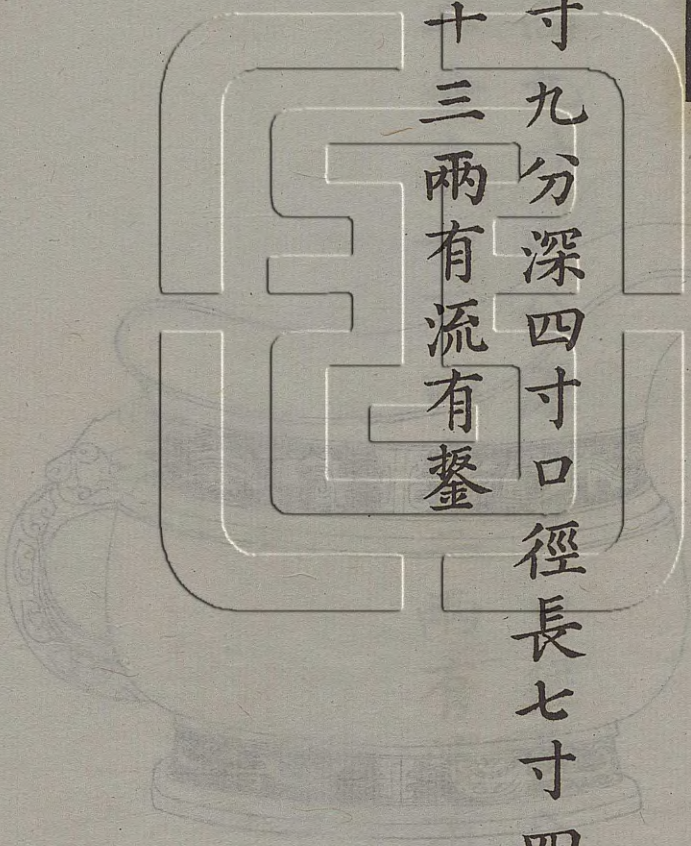 寸九分深四寸口徑長七寸四
十三兩有流有鋬